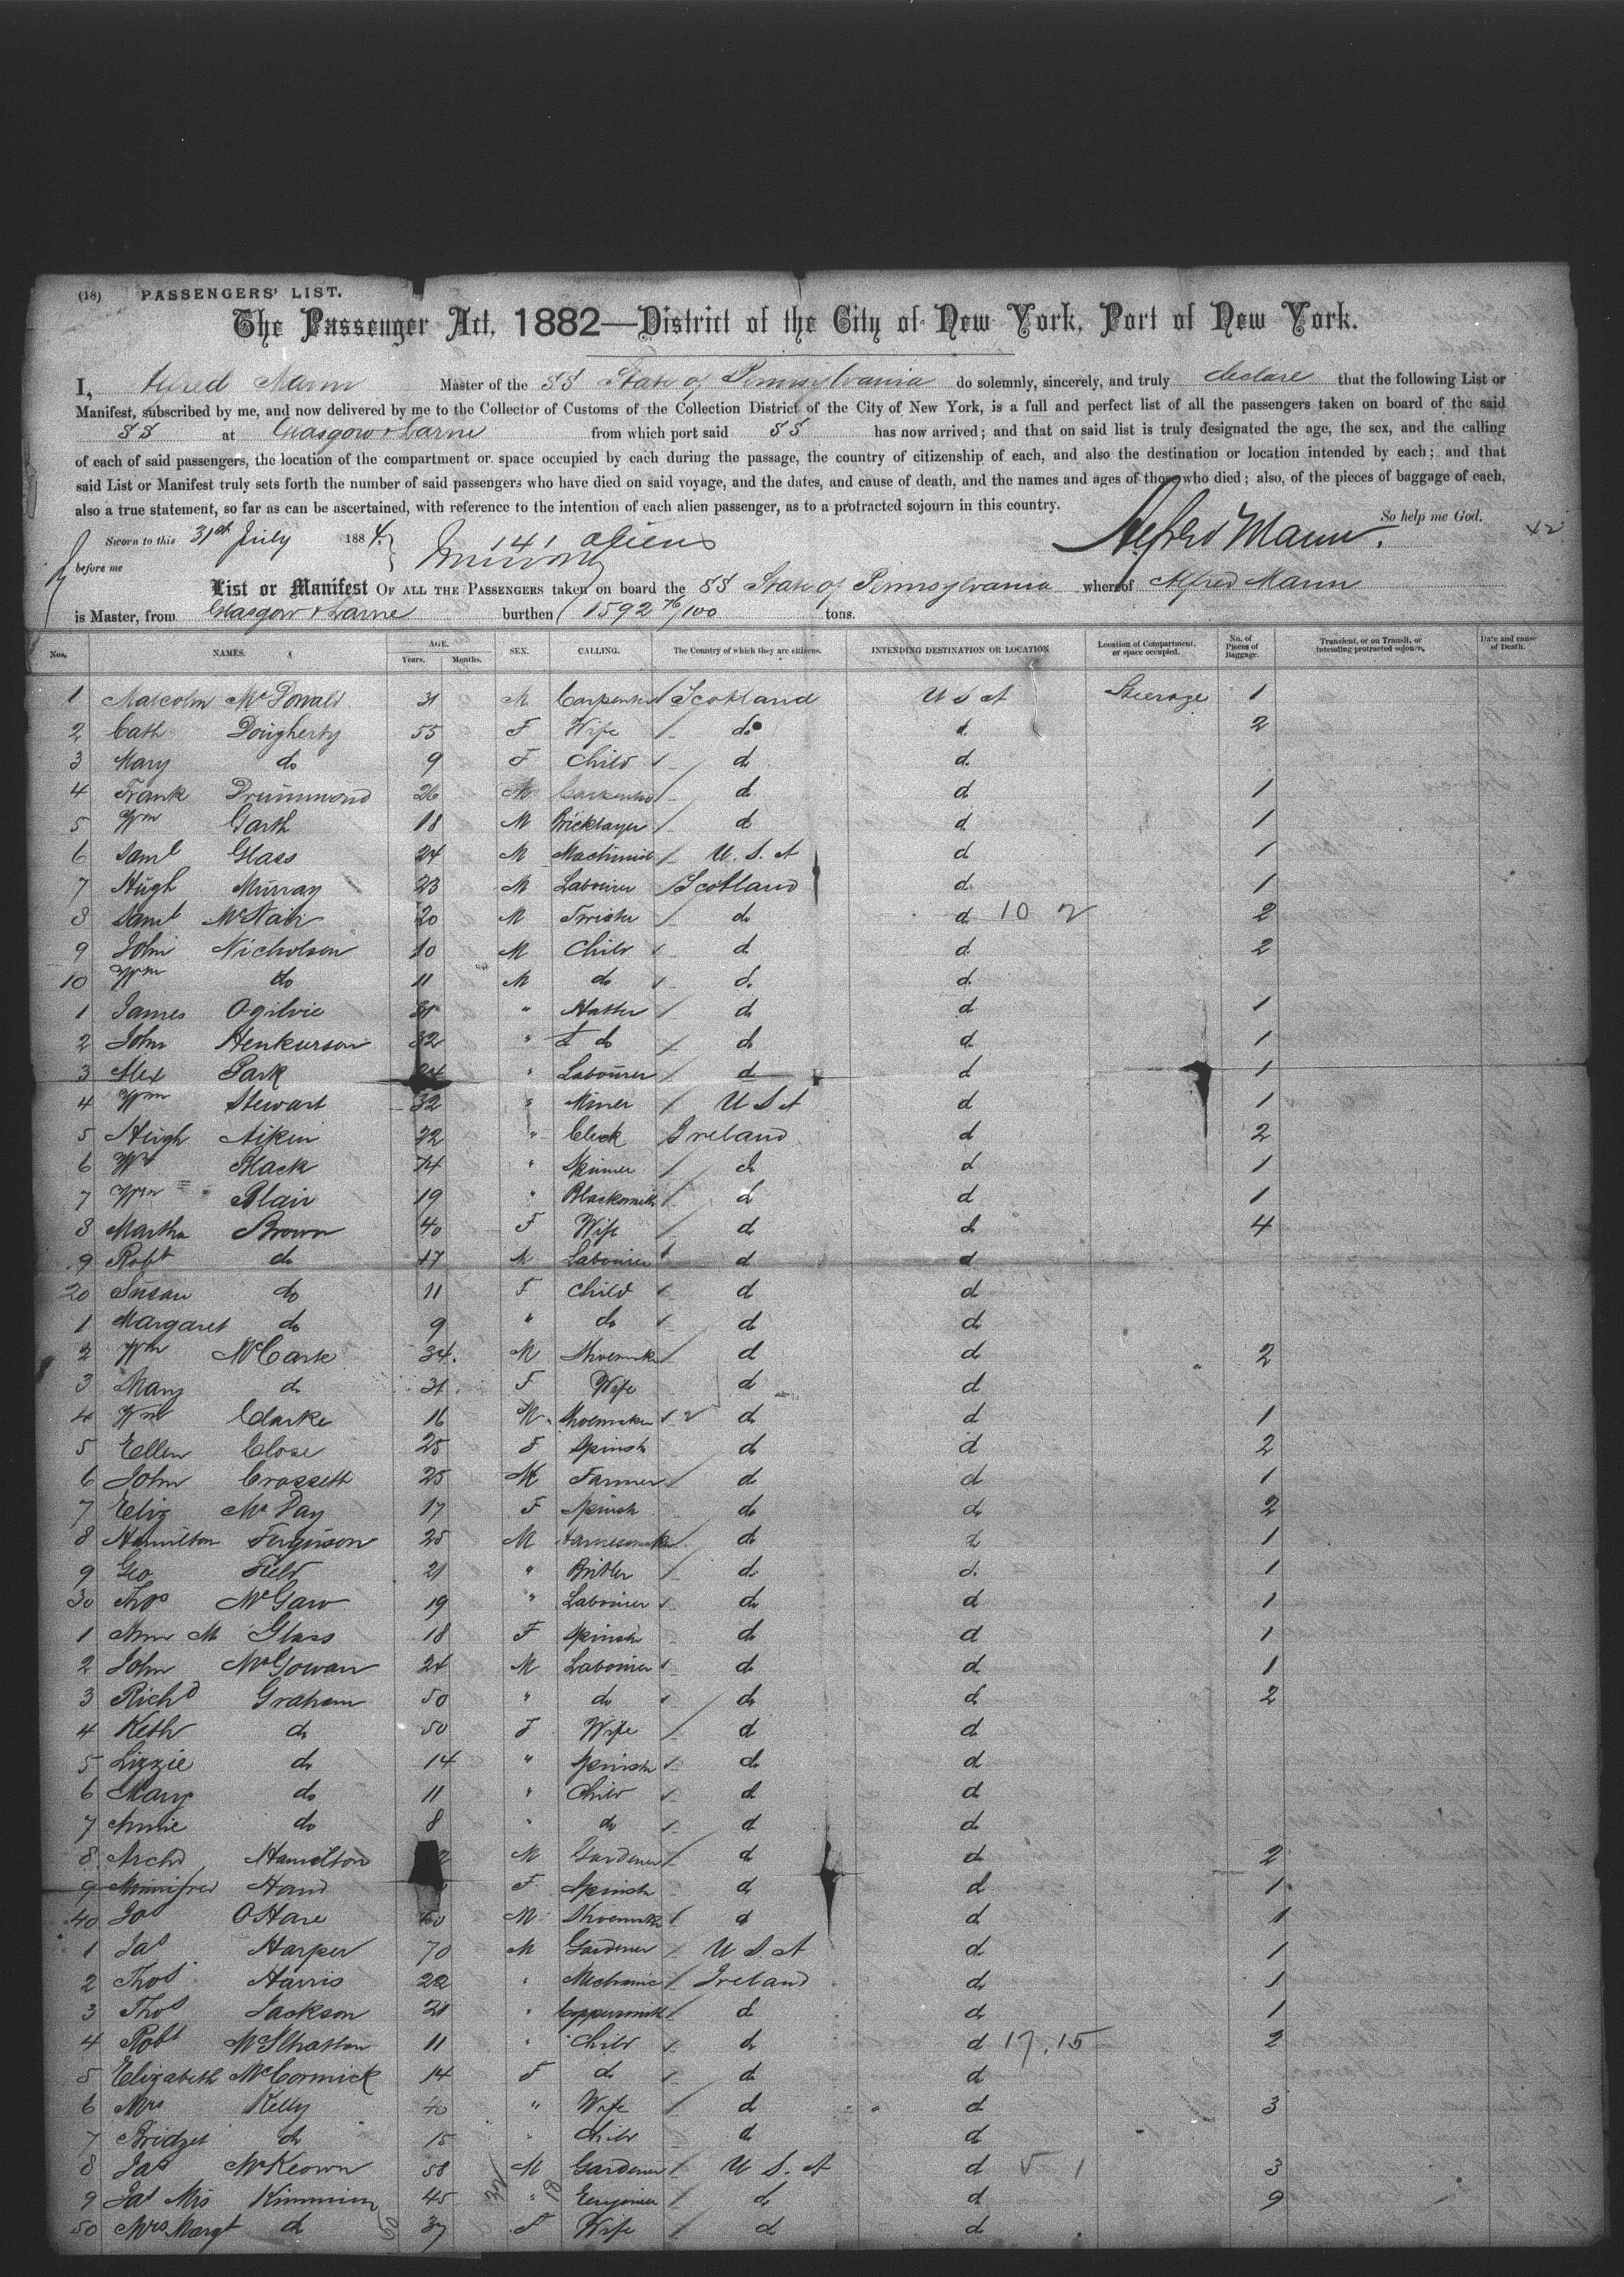 (18) PASSENGERS' LIST.
The Passenger Act, 1882—District of the City of New York, Port of New York.
I, Alfred Mann Master of the SS State of Pennsylvania do solemnly, sincerely, and truly declare that the following List or
Manifest, subscribed by me, and now delivered by me to the Collector of Customs of the Collection District of the City of New York, is a full and perfect list of all the passengers taken on board of the said
SS at Glasgow & Larne from which port said SS has now arrived; and that on said list is truly designated the age, the sex, and the calling
of each of said passengers, the location of the compartment or space occupied by each during the passage, the country of citizenship of each, and also the destination or location intended by each; and that
said List or Manifest truly sets forth the number of said passengers who have died on said voyage, and the dates, and cause of death, and the names and ages of those who died; also, of the pieces of baggage of each,
also a true statement, so far as can be ascertained, with reference to the intention of each alien passenger, as to a protracted sojourn in this country.
So help me God.
Sworn to this 31st July 1884. 141 aliens Alfred Mann.
before me
List or Manifest OF ALL THE PASSENGERS taken on board the SS State of Pennsylvania whereof Alfred Mann
is Master, from Glasgow & Larne burthen 1592 76/100 tons.
Nos. NAMES. AGE. Years. Months. SEX. CALLING. The Country of which they are citizens. INTENDING DESTINATION OR LOCATION Location of Compartment, or space occupied. No. of Pieces of Baggage. Transient, or on Transit, or intending protracted sojourn. Date and cause of Death.
1 Malcolm McDonald 31 M Carpenter Scotland U S A Steerage 1
2 Cath Dougherty 55 F Wife do d 2
3 Mary do 9 F Child d d
4 Frank Drummond 26 M Carpenter d d 1
5 Wm Garth 18 M Bricklayer d d 1
6 Saml Glass 24 M Machinist U. S. A d 1
7 Hugh Murray 23 M Labourer Scotland d 1
8 Saml McNair 20 M Twister do d 10 2
9 John Nicholson 10 M Child d d 2
10 Wm do 11 M do d d
1 James Ogilvie " Hatter d d 1
2 John 32 " do do d 1
3 Alex Park 24 " Labourer d d 1
4 Wm Stewart 32 " Miner U S A d 1
5 Hugh Aiken 22 " Clerk Ireland d 2
6 Black " Spinner do d 1
7 Wm Blair 19 " Blacksmith d d 1
8 Martha Brown 40 F Wife d do 4
9 Robt do 17 M Labourer d d
20 Susan do 11 F Child d d
1 Margaret do 9 " do d d
2 Wm 34 M Shoemaker d d 2
3 Mary do 31 F Wife d d
4 Wm Clarke 16 M Shoemaker d d 1
5 Ellen Close 25 F Spinstr d d 2
6 John 25 M Farmer d d 1
7 Eliz 17 F Spinstr do do 2
8 Hamilton Ferguson 25 M Harnessmaker do 1
9 Geo Field 21 " d d 1
30 Thos McGaw 19 " Labourer do d 1
1 Ann M Glass 18 F Spinstr do d 1
2 John McGowan 24 M Labourer do d 1
3 Richd Graham 50 " do do d 2
4 do 50 F Wife d d
5 Lizzie do 14 " Spinstr do d
6 Mary do 11 " Child d d
7 Annie do 8 " do d d
8 Archd Hamilton M Gardener d d 2
9 Winnifred Hand F Spinstr d d 1
40 Jas O'Hare M Shoemaker d d 1
1 Jas Harper 70 M Gardener U S A d 1
2 Thos Harris 22 " Mechanic Ireland d 1
3 Thos Jackson 21 " Coppersmith d d 1
4 Robt 11 " Child do d 17.15 2
5 Elizabeth McCormick 14 F do d d
6 Mrs Kelly 40 " Wife d d 3
7 Bridget do 15 " Child d d
8 Jas McKeown 58 M Gardener U. S. A d 3
9 45 " Engineer do d 9
50 Mrs Margt do 37 F Wife d d